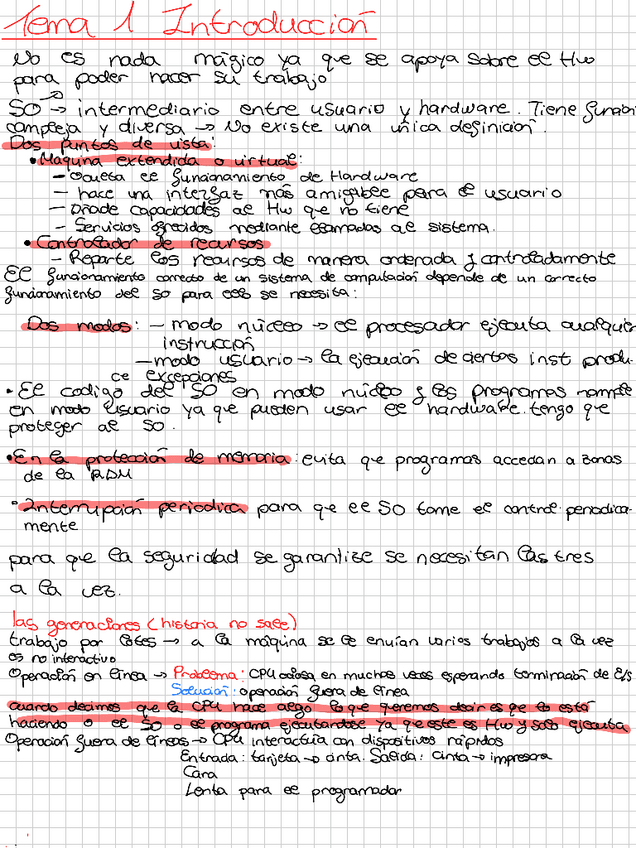 Tema 1 Introducción
No es nada mágico ya que se apoya sobre el Hw
para poder hacer su trabajo
SO → intermediario entre usuario y hardware. Tiene función
compleja y diversa → No existe una única definición.
Dos puntos de vista:
• Maquina extendida o virtual:
- Oculta el funcionamiento de Hardware
- hace una interfaz más amigable para el usuario
- Añade capacidades al Hw que no tiene
- Servicios ofrecidos mediante llamadas al sistema.
• Controlador de recursos
- Reparte los recursos de manera ordenada y controladamente
El funcionamiento correcto de un sistema de computación depende de un correcto
funcionamiento del SO para ello se necesita:
Dos modos: - modo núcleo → el procesador ejecuta cualquier
instrucción
- modo usuario → la ejecución de ciertas inst produ-
ce excepciones
• El codigo del SO en modo núcleo y los programas
en modo usuario ya que pueden usar el hardware. tengo que
proteger al SO.
• En la protección de memoria: evita que programas accedan a zonas
de la RAM
• Interrupción periodica para que el SO tome el control periodica-
mente
para que la seguridad se garantize se necesitan las tres
a la vez.
las generaciones (historia no sale)
trabajo por lotes → a la máquina se le envían varios trabajos a la vez
es no interactivo
Operación en línea → Problema: CPU ociosa en muchas veces esperando terminación de E/S
Solución: operación fuera de línea
cuando decimos que la CPU hace algo lo que queremos decir es que lo está
haciendo o el SO o el programa ejecutandose ya que este es Hw y solo ejecuta
Operación fuera de líneas → CPU interactúa con dispositivos rápidos
Entrada: tarjeta → cinta. Salida: cinta → impresora
Cara
Lenta para el programador